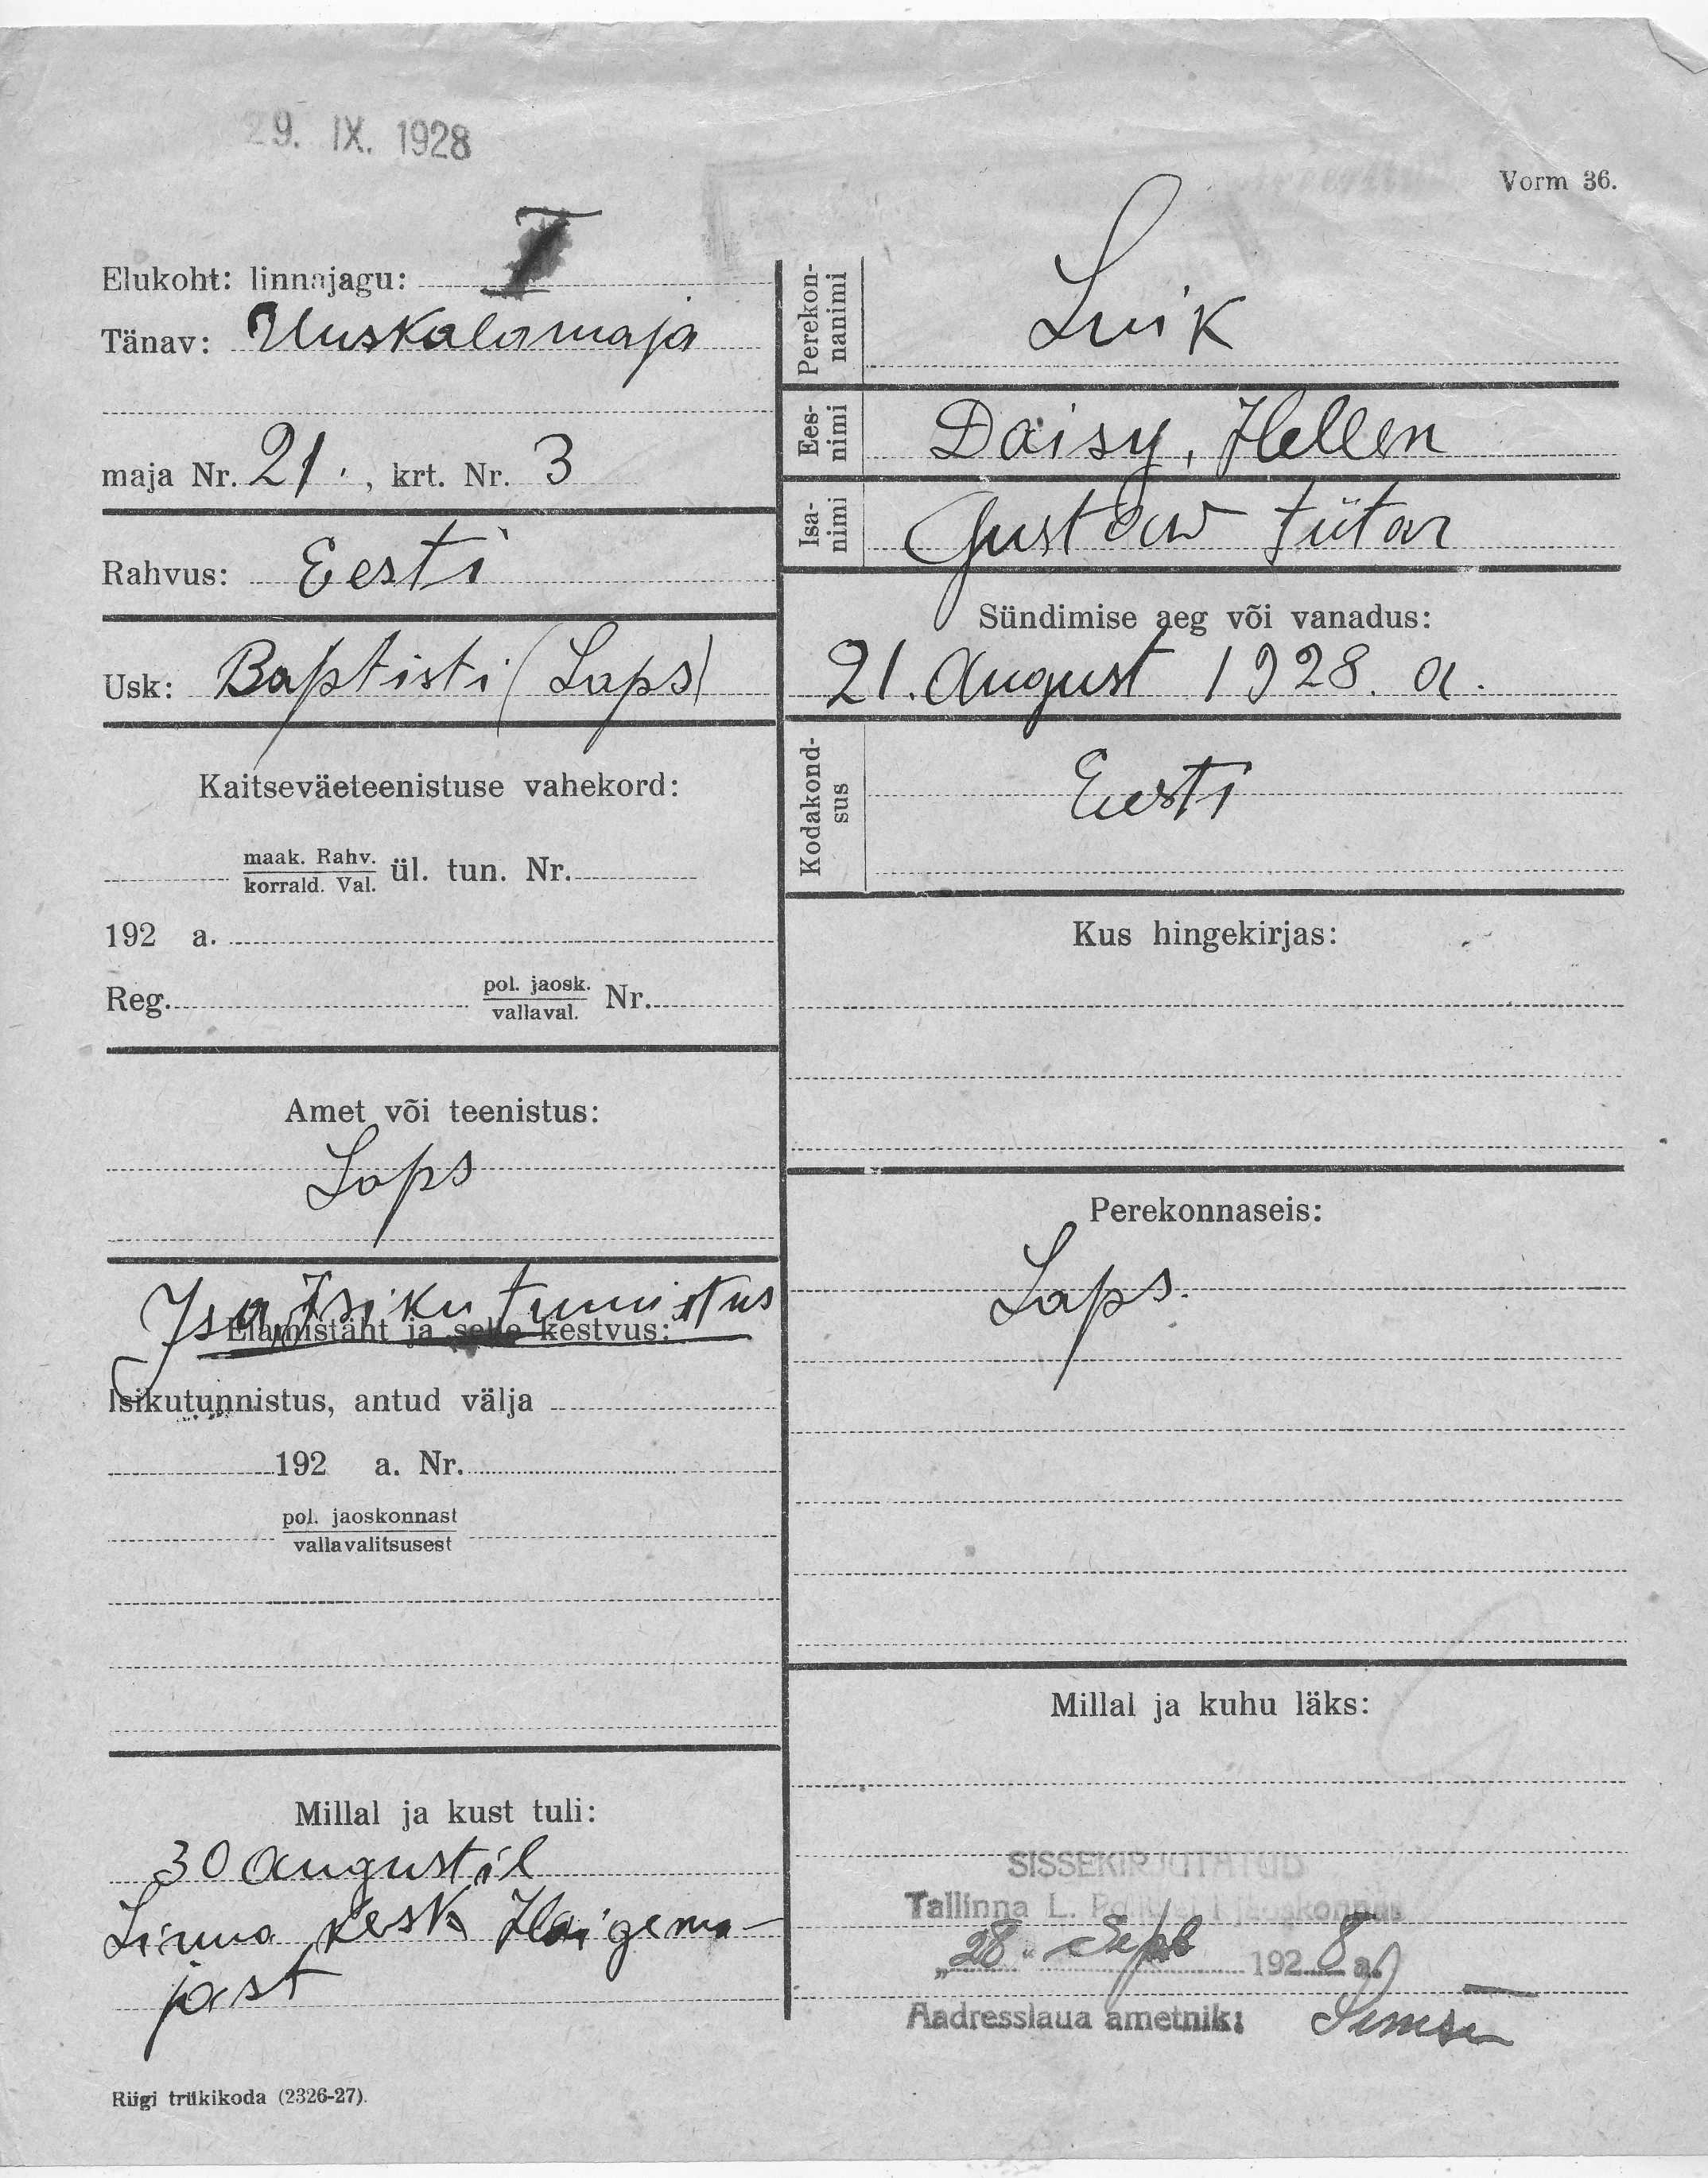 29. IX. 1928
Vorm 36.
Elukoht: linnajagu: I
Tänav: Uuskalamaja
maja Nr. 21., krt. Nr. 3
Rahvus: Eesti
Usk: Baptisti (Laps)
Kaitseväeteenistuse vahekord:
maak. Rahv.
korrald. Val. ül. tun. Nr.
192 a.
Reg. pol. jaosk. Nr.
vallaval.
Amet või teenistus:
Laps
Isa, Isiku tunnistus
Elamistäht ja selle kestvus:
Isikutunnistus, antud välja
192 a. Nr.
pol. jaoskonnast
vallavalitsusest
Millal ja kust tuli:
30 augustil
Linna kesk Haigema-
jast
Riigi trükikoda (2326-27).
Perekon-
nanimi
Luik
Ees-
nimi
Daisy, Hellen
Isa-
nimi
Gustaw tütar
Sündimise aeg või vanadus:
21. August 1928. a.
Kodakond-
sus
Eesti
Kus hingekirjas:
Perekonnaseis:
Laps.
Millal ja kuhu läks:
SISSEKIRJUTATUD
Tallinna L. Politsei I jaoskonnas
„28“ Sept 1928 a.
Aadresslaua ametnik: